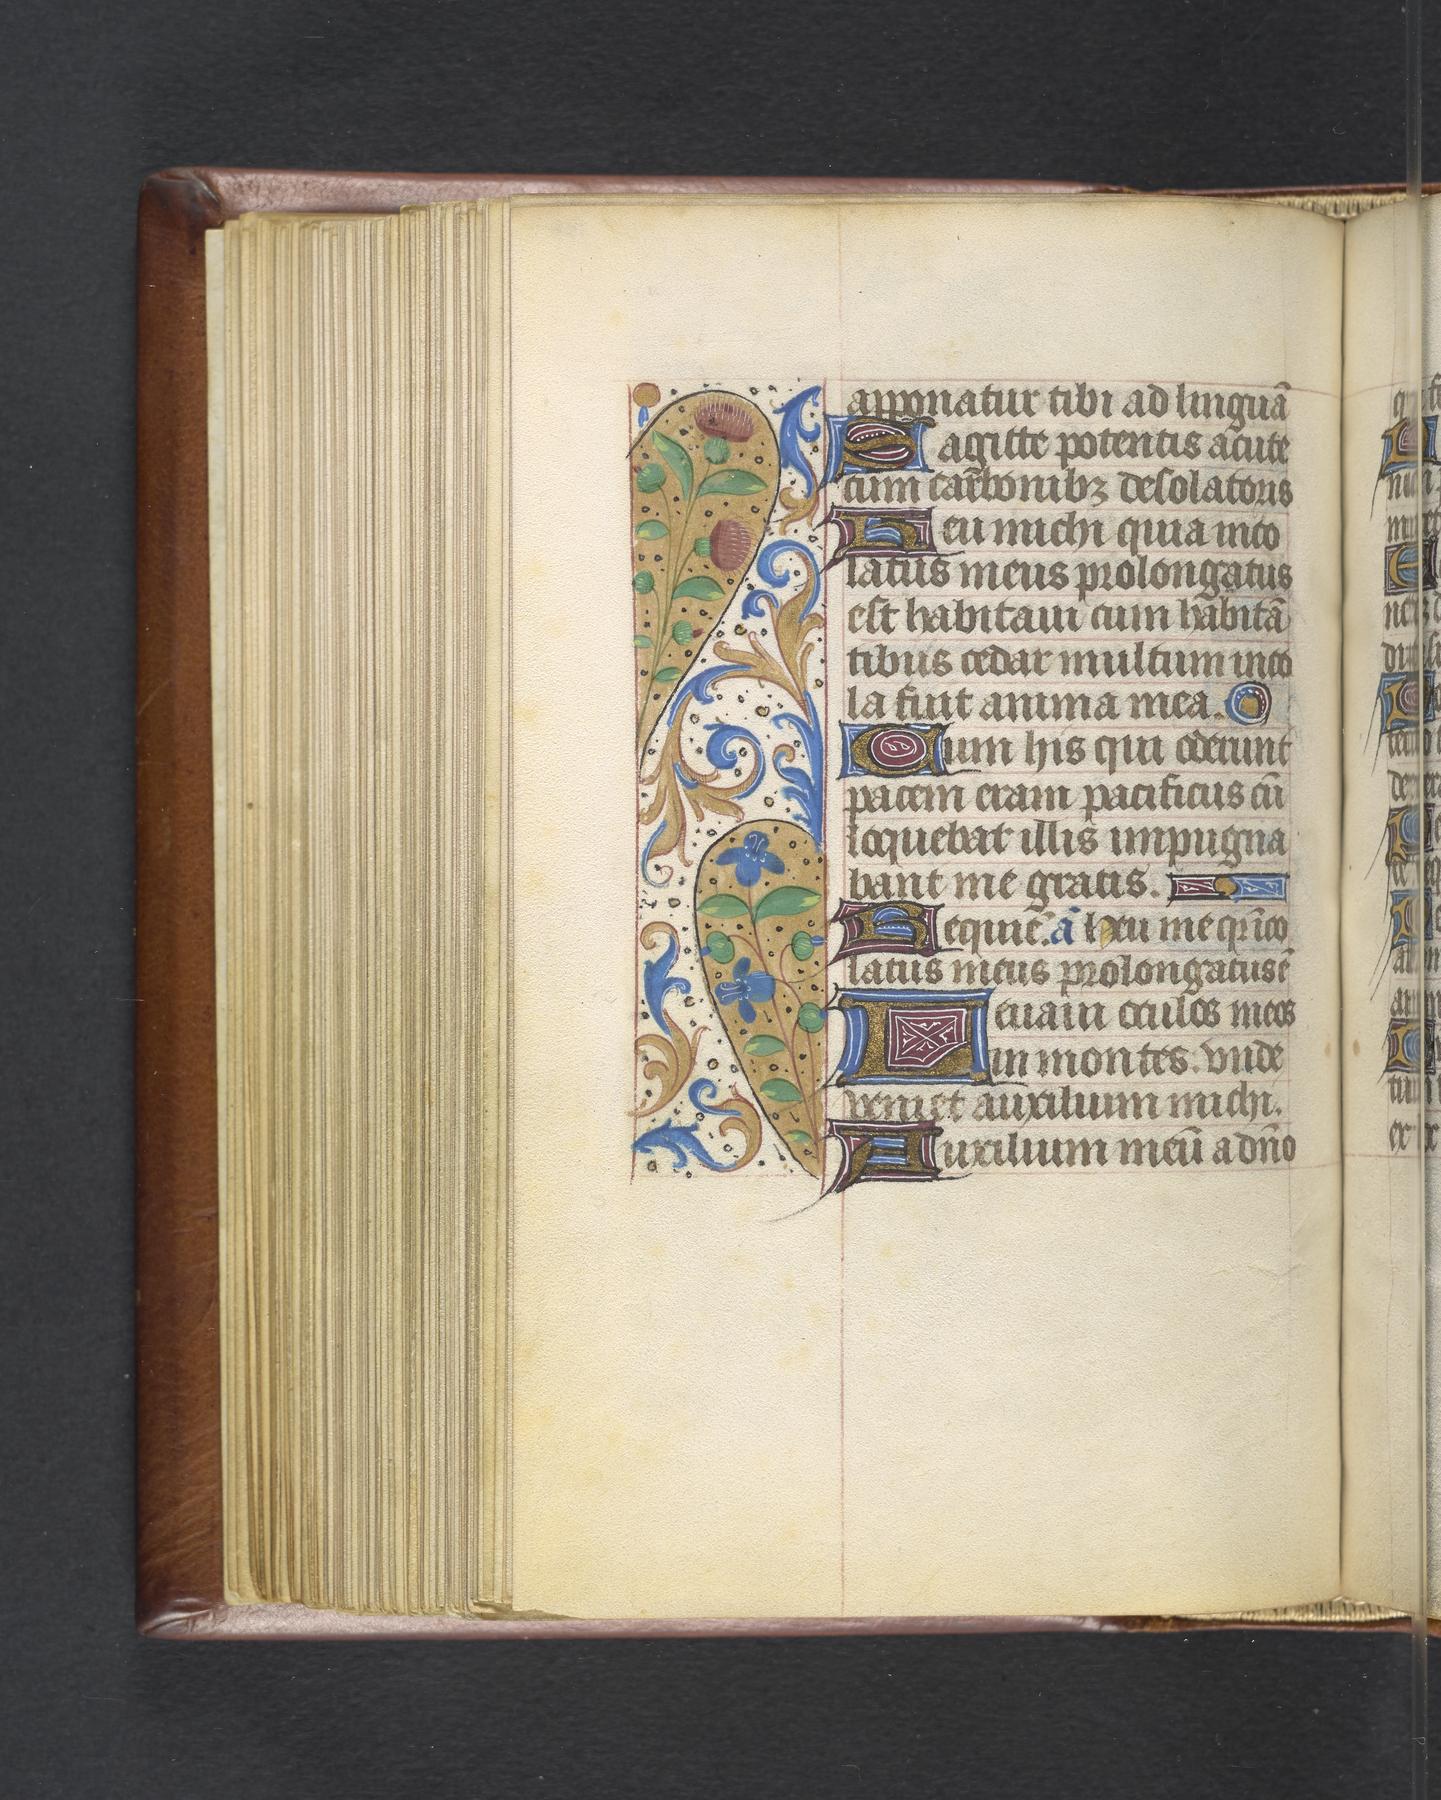 apponatur tibi ad linguā
Sagitte potentis acute
cum carbonibꝫ desolatoriis
Heu michi quia inco
latus meus prolongatus
est habitaui cum habitā
tibus cedar multum inco
la fuit anima mea.
Cum his qui oderunt
pacem eram pacificus cū
loquebar illis impugna
bant me gratis.
Requiē. ā heu me
latus meus prolongatus ē
Leuaui oculos meos
in montes. vnde
veniet auxilium michi.
Auxilium meū a dn̄o